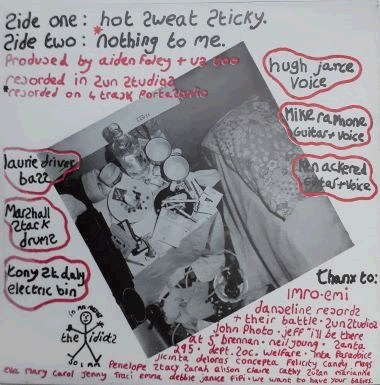 Side one: hot sweat sticky.
Side two: *nothing to me.
Produced by aiden foley + us too
recorded in sun studios
*recorded on 4 track portastudio
hugh jarce
voice
Mike raphone
guitar + voice
Ken ackered
guitar + voice
laurie driver
bass
Marshall
stack
drums
tony st daly
electric bin
in no mood
the idiots
so i am
thanx to:
IMRO · emi
danceline records
+ their battle · sun studios
John Photo · jeff "i'll be there
at 5" brennan · neil young · santa
295 · dept. soc. welfare · inta paradice
jicinta deloras concepta felicity candy mags
penelope stacy sarah alison claire cathy susan marianne
ella mary carol jenny traci emma debbie janice fifi · we want to have your babies